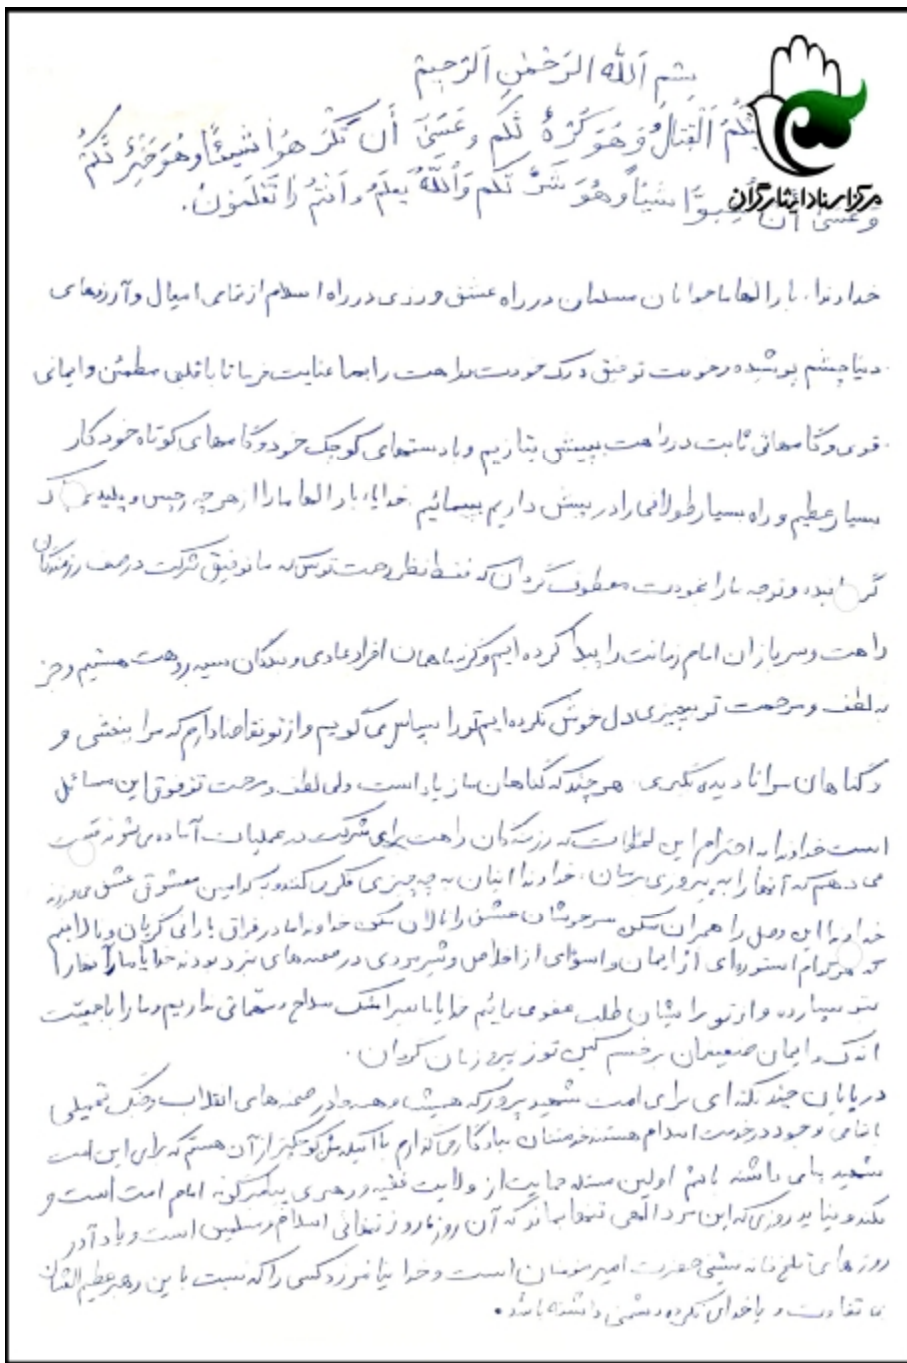 بِسْمِ اَللّٰهِ الرَحْمٰنِ اَلرَحیمْ
مرکز اسناد ایثارگران
الْقِتَالُ وَ هُوَ كُرْهٌ لَكُم وَ عَسَىٰ أَن تَكْرَهُوا شَيْئًا وَ هُوَ خَيْرٌ لَكُمْ
وَ عَسَىٰ أَنْ تُحِبّوا شَيْئاً وَ هُوَ شَرٌّ لَكُم وَاَللّٰهُ یَعلَمُ وَ اَنتُمْ لَا تَعْلَمُونَ.
خداوندا، بارالها ما جوانان مسلمان در راه عشق ورزی در راه اسلام از تمامی امیال و آرزوهای
دنیا چشم پوشیده و خودت توفیق درک خودت و راهت را بما عنایت فرما تا با قلبی مطمئن و ایمانی
قوی و گامهائی ثابت در راهت به پیش بتازیم و با دستهای کوچک خود و گامهای کوتاه خود کار
بسیار عظیم و راه بسیار طولانی را در پیش داریم بپیمائیم. خدایا، بارالها ما را از هر چه رجس و پلیدی
گردانیده و توجه ما را بخودت معطوف گردان که فقط نظر رحمت توس که ما توفیق شرکت در صف رزمندگان
راهت و سربازان امام زمانت را پیدا کرده ایم وگرنه ما همان افراد عادی و بندگان سیه رویت هستیم و جز
به لطف و مرحمت تو بچیزی دل خوش نکرده ایم تو را سپاس می گویم و از تو تقاضا دارم که مرا ببخشی و
و گناهان مرا نادیده بگیری. هر چند که گناهان ما زیاد است ولی لطف و رحمت تو فوق این مسائل
است خداوندا به احترام این لحظات که رزمندگان راهت برای شرکت در عملیات آماده می شوند قسمت
می دهم که آنها را به پیروزی برسان. خداوندا اینان به چه چیزی فکر می کنند و به کدامین معشوق عشق می ورزند
خداوندا این وصل را هجران مکن سرخوشان عشق را نالان مکن خداوندا ما در فراق یارانی گریان و نالانیم
که هر کدام اسطوره ای از ایمان و اسوه ای از اخلاص و شیرمردی در صحنه های نبرد بودند خدایا ما آنها را
بتو سپارده و از تو برایشان طلب عفو می نمائیم خدایا ما جز اشک سلاح و متاعی نداریم و ما را با جمعیت
اندک و ایمان ضعیفمان بر خصم کین توز پیروزمان گردان.
در پایان چند نکته ای برای امت شهید پرور که همیشه و همه جا در صحنه های انقلاب و جنگ تحمیلی
با تمامی وجود در خدمت اسلام هستند خدمتتان بیادگار می گذارم با آنکه من کوچکتر از آن هستم که برای این امت
شهید پیامی داشته باشم اولین مسئله حمایت از ولایت فقیه و رهبری پیامبرگونه امام امت است و
نکند و نیاید روزی که این مرد الهی تنها بماند که آن روز، روز تنهائی اسلام و مسلمین است و یادآور
روزهای تلخ خانه نشینی حضرت امیر مومنان است و خدا نیامرزد کسی را که نسبت باین رهبر عظیم الشان
بی تفاوت و یا خدای نکرده دشمنی داشته باشد.